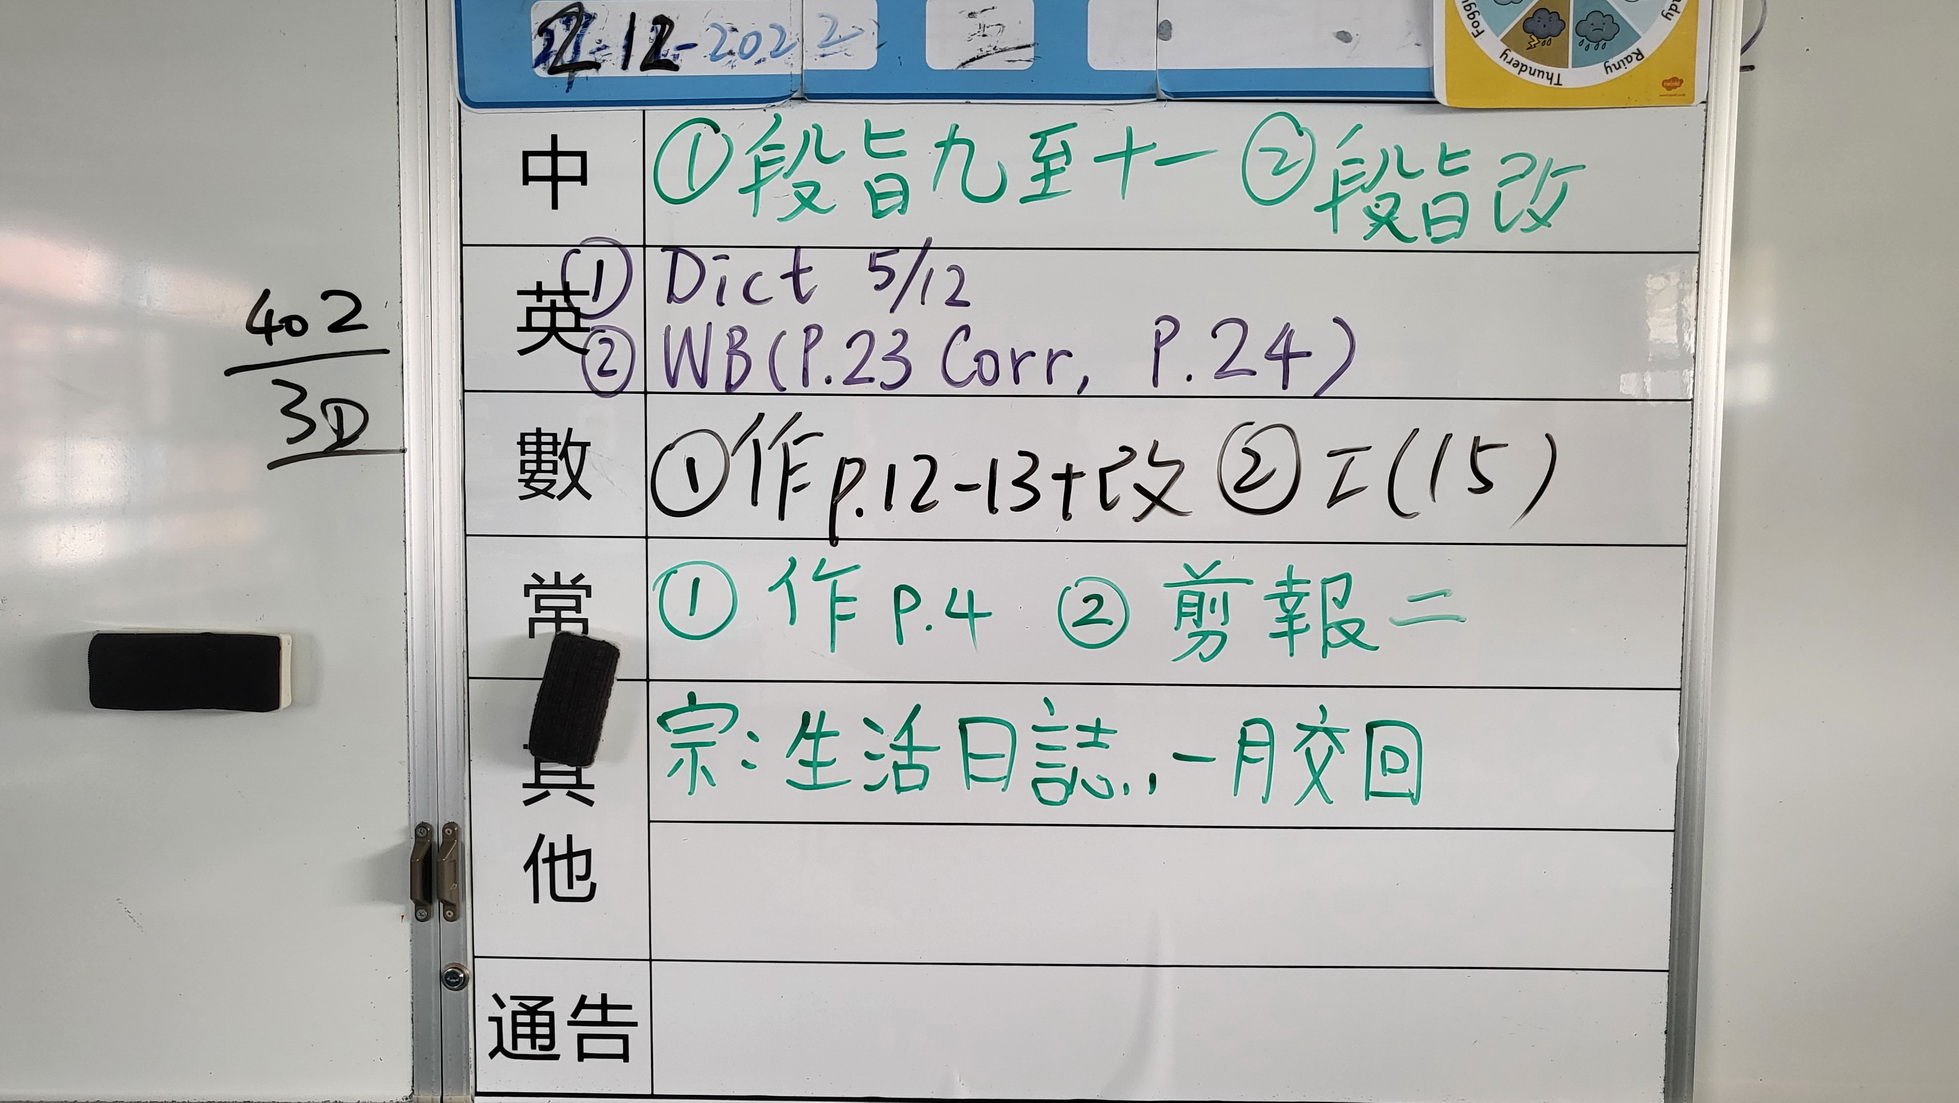 2-12-2022 五
Foggy Thundery Rainy
中 ①段皆九至十一 ②段皆改
英 ① Dict 5/12
② WB(P.23 Corr, P.24)
數 ①作p.12-13+改 ②工(15)
常 ① 作 P.4 ② 剪報二
其他 宗:生活日誌..,一月交回
通告
402
3D